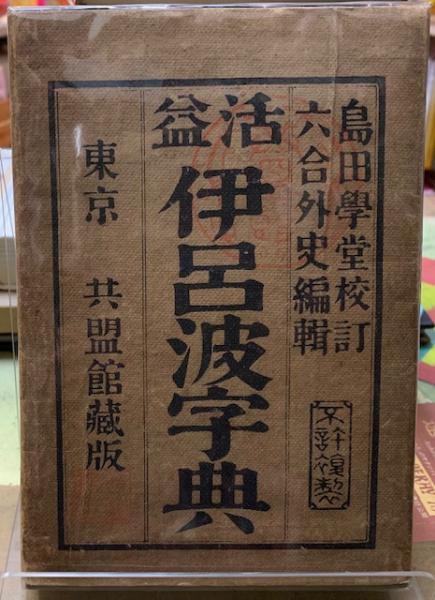 島田學堂校訂
六合外史編輯
不許複製
活益
伊呂波字典
東京 共盟館藏版